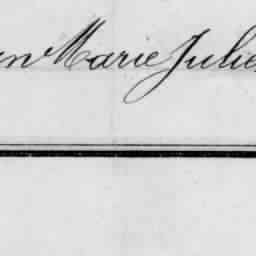 n Marie Julie